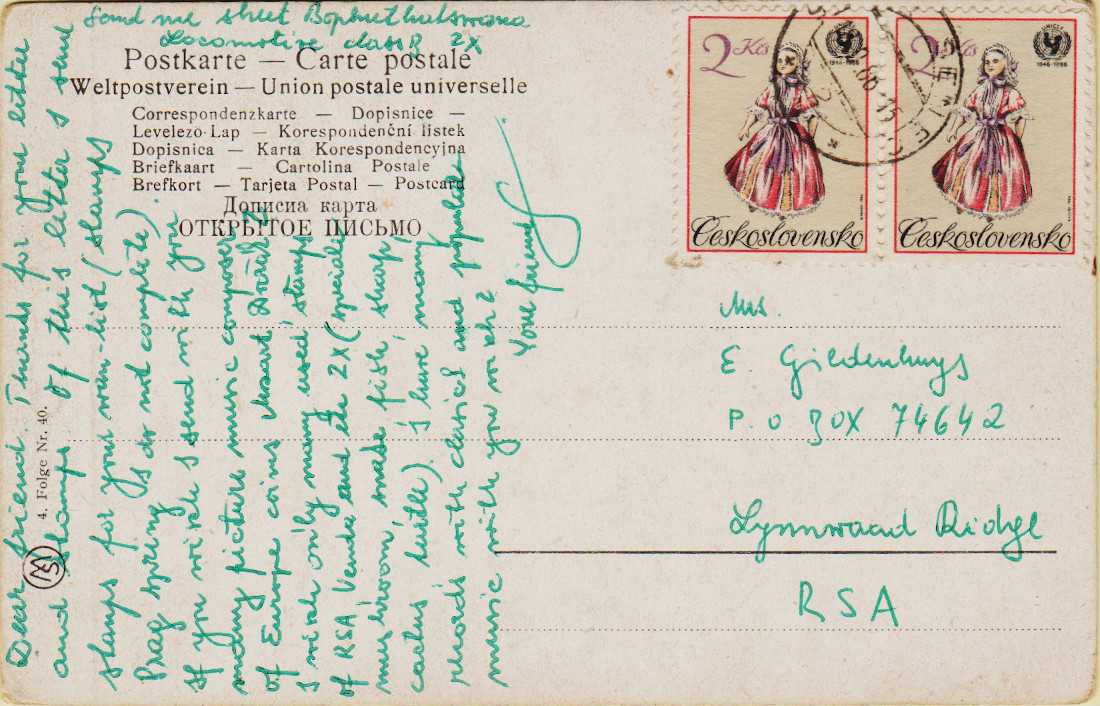 Send me sheet Bophuthatswana
Locomotive class R 2X
Postkarte — Carte postale
Weltpostverein — Union postale universelle
Correspondenzkarte — Dopisnice —
Levelezö-Lap — Korespondenční listek
Dopisnica — Karta Korespondencyjna
Briefkaart — Cartolina Postale
Brefkort — Tarjeta Postal — Postcard
Дописна карта
ОТКРЫТОЕ ПИСЬМО
Dear friend. Thanks for your letter
and stamps. Of this letter I send
stamps for your wan-list (stamps
Prag spring is do not complete).
If you wish I send with you
many picture music composer
of Europe coins Mozart Dvořák?
I wish only many used stamps
of RSA Venda and etc 2X (special
mushroom, made fish sharp,
cactus turtle). I have many
records with classical and popular
music with you wish?
Your friend
4. Folge Nr. 40.
2 Kčs
UNICEF
1946-1986
Československo
2 Kčs
UNICEF
1946-1986
Československo
Mrs.
E. Gildenhuys
P.O BOX 74642
Lynnwaad Ridge
RSA